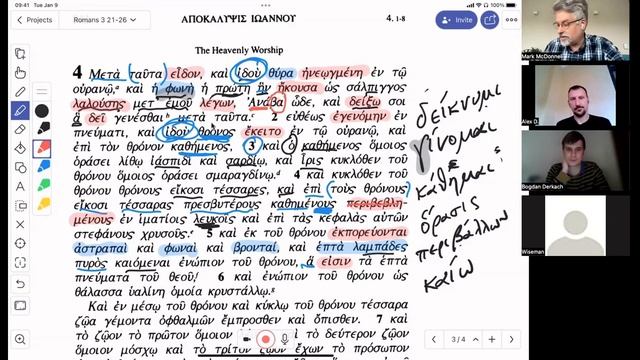 09:41 Tue Jan 9
Projects
Romans 3 21-26
Invite
ΑΠΟΚΑΛΥΨΙΣ ΙΩΑΝΝΟΥ
4. 1-8
The Heavenly Worship
4 Μετὰ ταῦτα εἶδον, καὶ ἰδοὺ θύρα ἠνεῳγμένη ἐν τῷ
οὐρανῷ, καὶ ἡ φωνὴ ἡ πρώτη ἣν ἤκουσα ὡς σάλπιγγος
λαλούσης μετ' ἐμοῦ λέγων, Ἀνάβα ὧδε, καὶ δείξω σοι
ἃ δεῖ γενέσθαι μετὰ ταῦτα. 2 εὐθέως ἐγενόμην ἐν
πνεύματι, καὶ ἰδοὺ θρόνος ἔκειτο ἐν τῷ οὐρανῷ, καὶ
ἐπὶ τὸν θρόνον καθήμενος, 3 καὶ ὁ καθήμενος ὅμοιος
ὁράσει λίθῳ ἰάσπιδι καὶ σαρδίῳ, καὶ ἶρις κυκλόθεν τοῦ
θρόνου ὅμοιος ὁράσει σμαραγδίνῳ. 4 καὶ κυκλόθεν τοῦ
θρόνου θρόνους εἴκοσι τέσσαρες, καὶ ἐπὶ τοὺς θρόνους
εἴκοσι τέσσαρας πρεσβυτέρους καθημένους περιβεβλη-
μένους ἐν ἱματίοις λευκοῖς καὶ ἐπὶ τὰς κεφαλὰς αὐτῶν
στεφάνους χρυσοῦς. 5 καὶ ἐκ τοῦ θρόνου ἐκπορεύονται
ἀστραπαὶ καὶ φωναὶ καὶ βρονταί, καὶ ἑπτὰ λαμπάδες
πυρὸς καιόμεναι ἐνώπιον τοῦ θρόνου, ἅ εἰσιν τὰ ἑπτὰ
πνεύματα τοῦ θεοῦ, 6 καὶ ἐνώπιον τοῦ θρόνου ὡς
θάλασσα ὑαλίνη ὁμοία κρυστάλλῳ.
Καὶ ἐν μέσῳ τοῦ θρόνου καὶ κύκλῳ τοῦ θρόνου τέσσαρα
ζῷα γέμοντα ὀφθαλμῶν ἔμπροσθεν καὶ ὄπισθεν. 7 καὶ
τὸ ζῷον τὸ πρῶτον ὅμοιον λέοντι καὶ τὸ δεύτερον ζῷον
ὅμοιον μόσχῳ καὶ τὸ τρίτον ζῷον ἔχων τὸ πρόσωπον
δείκνυμι
γίνομαι
κάθημαι
ὅρασις
περιβάλλων
καίω
3 / 4
Mark McDonnell
Alex D.
Bogdan Derkach
Wiseman